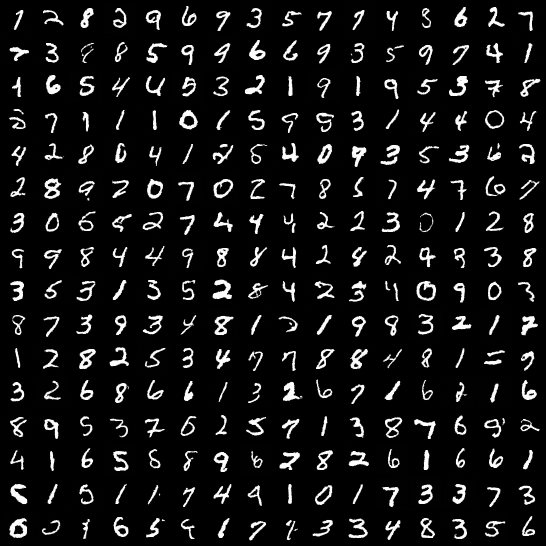 1 2 8 2 9 6 9 3 5 7 7 4 8 6 2 7
3 9 8 5 9 9 6 6 9 3 5 9 7 4 1
1 6 5 4 4 5 3 2 1 9 1 9 5 3 7 8
7 1 1 1 0 1 5 9 8 3 1 4 4 0 4
4 2 8 0 4 1 2 5 4 0 9 3 5 3 6 2
2 8 9 2 0 7 0 2 7 8 5 7 4 7 6 7
3 0 6 5 2 7 4 4 4 2 2 3 0 1 2 8
9 9 8 4 4 9 8 8 4 2 8 2 9 8 3 8
3 5 3 1 3 5 2 8 4 2 5 4 0 9 0 3
8 7 3 9 3 4 8 1 2 1 9 8 3 2 1 7
1 2 8 2 5 3 4 7 7 8 8 4 8 1 9
3 2 6 8 6 6 1 3 2 6 7 1 6 2 1 6
8 9 5 3 7 6 2 5 7 1 3 8 7 6 9 2
4 1 6 5 8 8 9 6 2 8 2 6 1 6 6 1
5 1 5 1 1 7 4 9 1 0 1 7 3 3 7 3
0 6 5 9 1 7 3 3 4 8 3 5 6